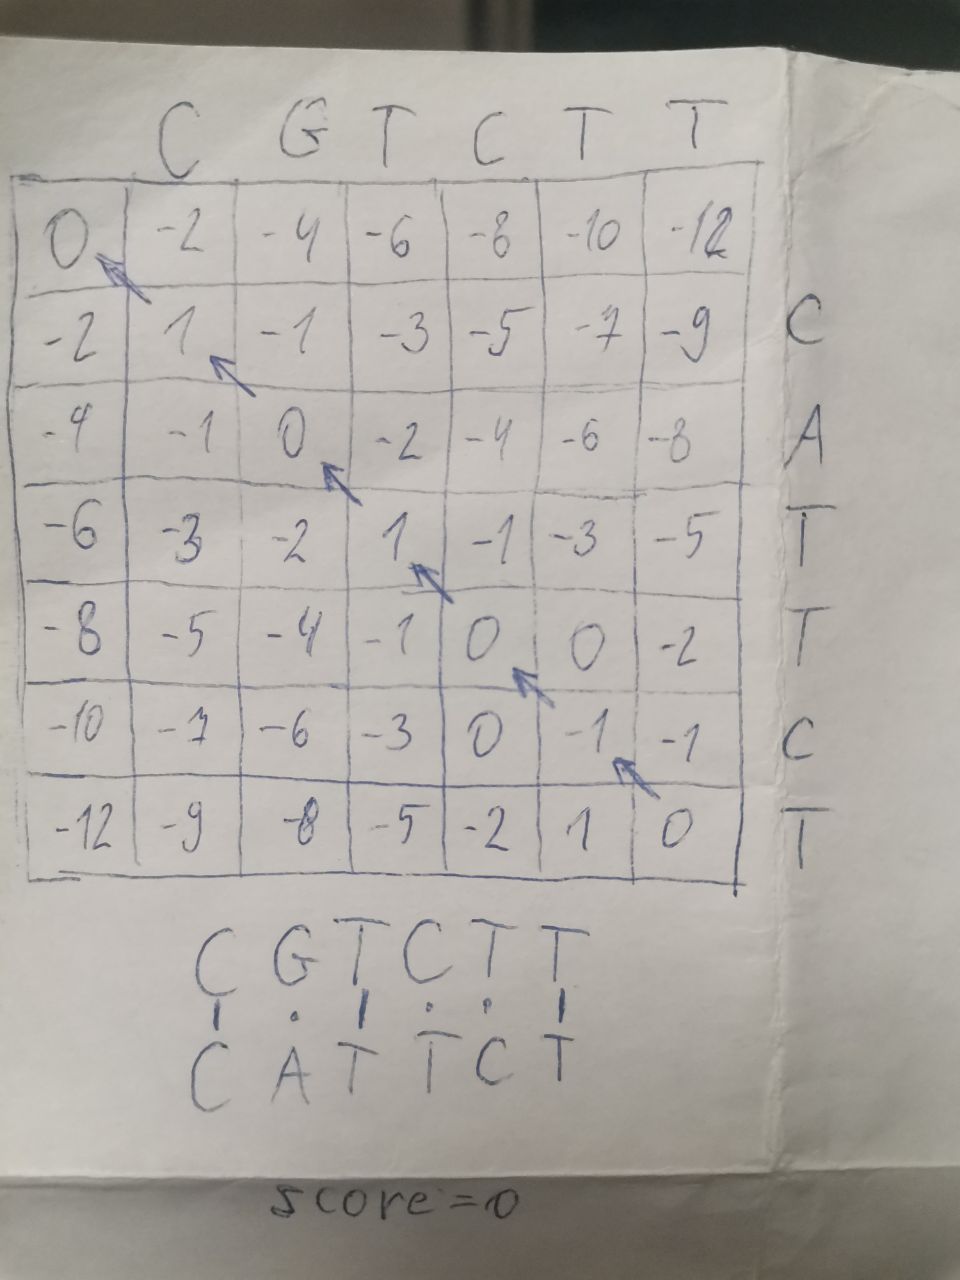 C G T C T T
0 -2 -4 -6 -8 -10 -12
-2 1 -1 -3 -5 -7 -9 C
-4 -1 0 -2 -4 -6 -8 A
-6 -3 -2 1 -1 -3 -5 T
-8 -5 -4 -1 0 0 -2 T
-10 -7 -6 -3 0 -1 -1 C
-12 -9 -8 -5 -2 1 0 T
C G T C T T
| . | . . |
C A T T C T
score = 0